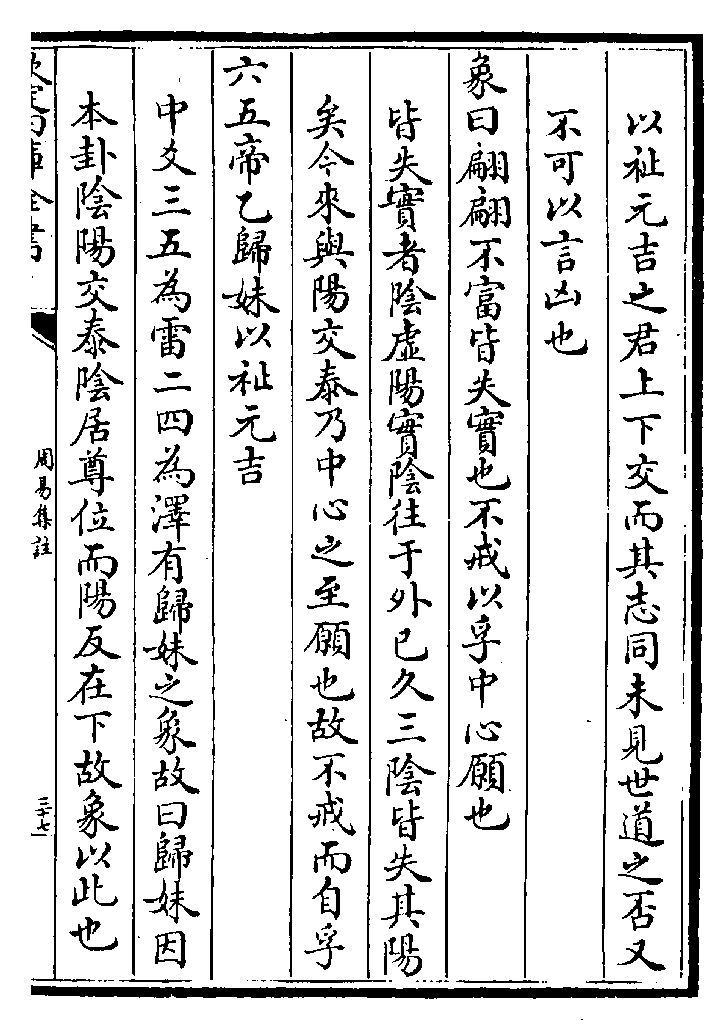 以祉元吉之君上下交而其志同未見世道之否又
不可以言凶也
象曰翩翩不富皆失實也不戒以孚中心願也
皆失實者陰虛陽實陰往于外已久三陰皆失其陽
矣今來與陽交泰乃中心之至願也故不戒而自孚
六五帝乙歸妹以祉元吉
中爻三五為雷二四為澤有歸妹之象故曰歸妹因
本卦陰陽交泰陰居尊位而陽反在下故象以此也
欽定四庫全書
周易集註
三十七